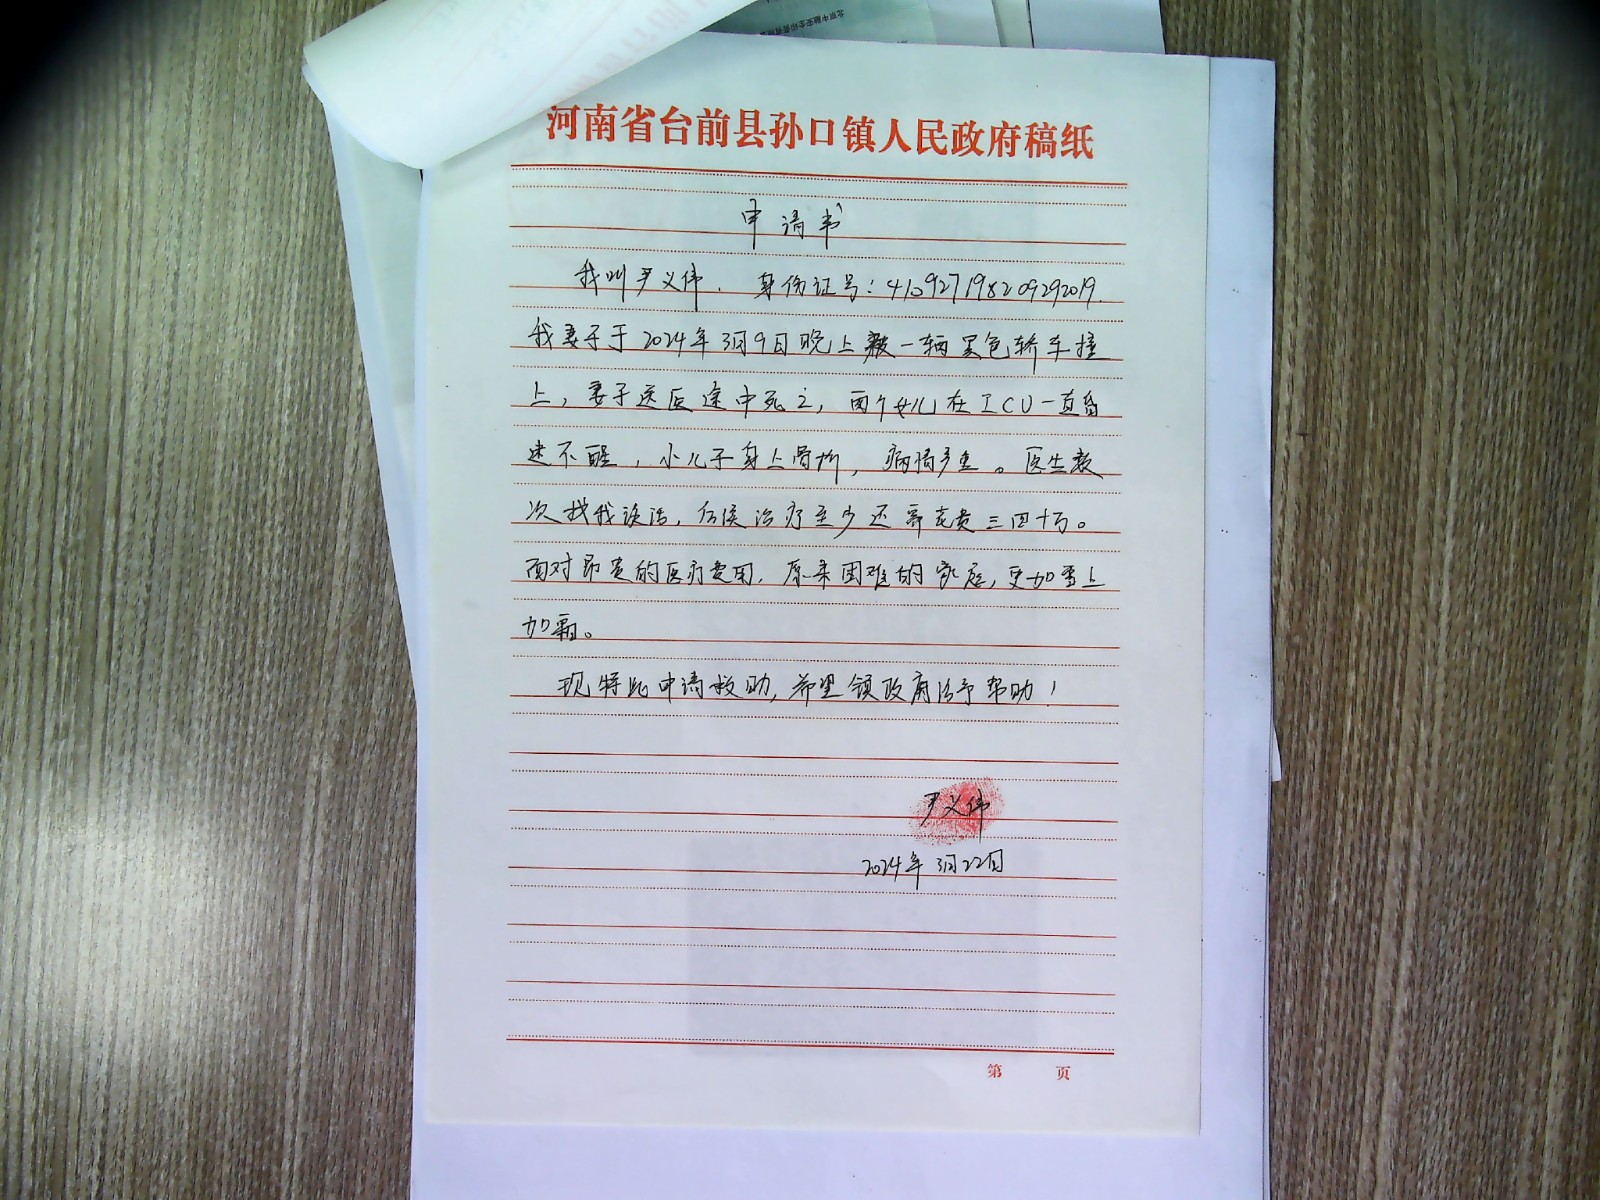 河南省台前县孙口镇人民政府稿纸
申请书
我叫尹义伟. 身份证号：410927198209292019.
我妻子于2024年3月9日晚上被一辆黑色轿车撞
上，妻子送医途中死亡，两个女儿在ICU一直昏
迷不醒，小儿子身上骨折，病情严重。医生数
次找我谈话，后续治疗至少还需花费三四十万。
面对昂贵的医疗费用，原来困难的家庭，更加雪上
加霜。
现特此申请救助，希望镇政府给予帮助！
尹义伟
2024年3月22日
第 页